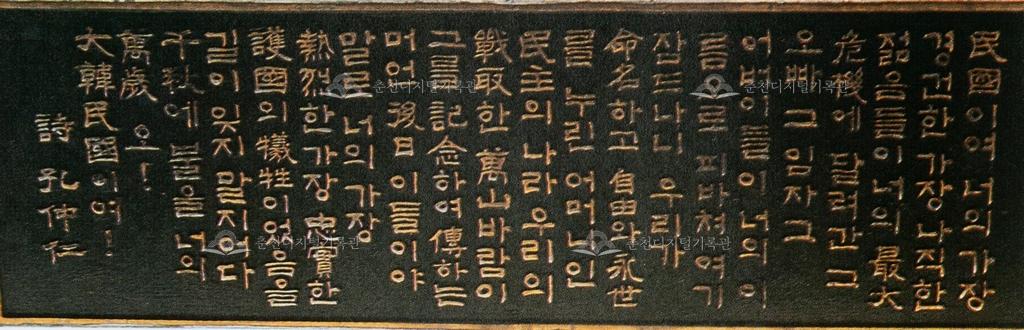 民國이여 너의 가장
경건한 가장 나직한
젊음들이 너의 最大
危機에 달려간 그
오빠 그 임자 그
어버이들이 너의 이
름으로 피바쳐 여기
잠드나니 우리가
命名하고 自由와 永世
를 누린 어머니인
民主의 나라 우리의
戰取한 萬山바람이
그를 記念하여 傳하는
머언 後日 이들이야
말로 너의 가장
熱烈한 가장 忠實한
護國의 犧牲이었음을
길이 잊지 말지여다
千秋에 불을 너의
萬歲 오!
大韓民國이여!
詩 孔仲仁
춘천디지털기록관
춘천디지털기록관
춘천디지털기록관
춘천디지털기록관